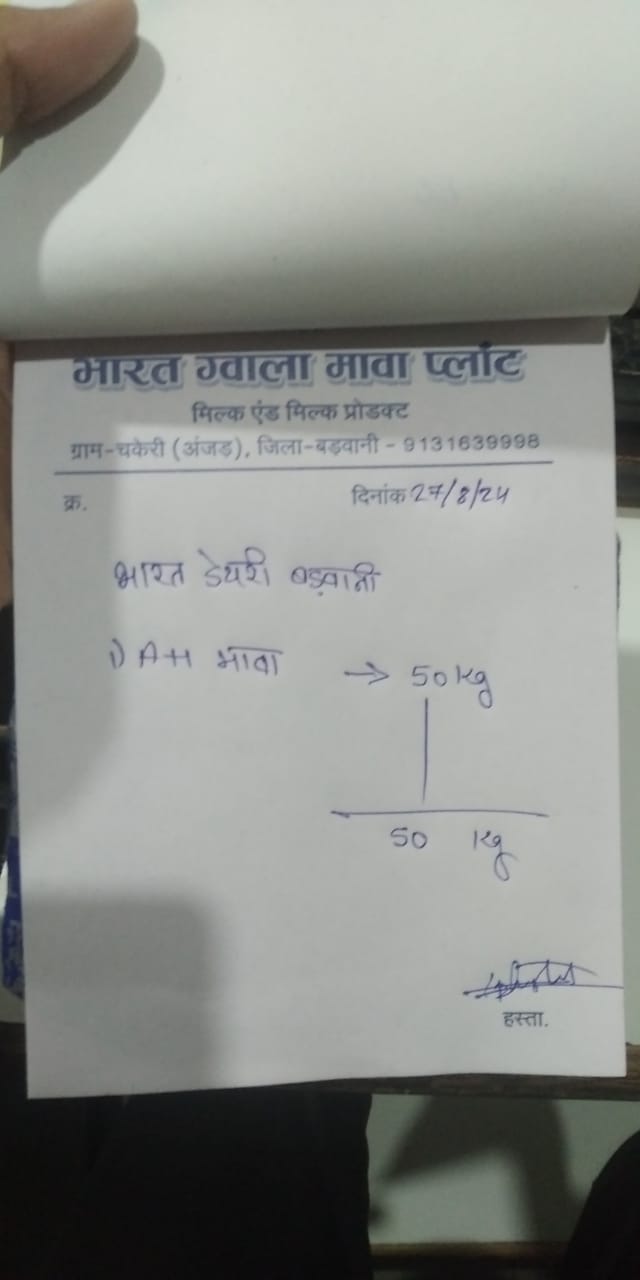 भारत ग्वाला मावा प्लांट
मिल्क एंड मिल्क प्रोडक्ट
ग्राम-चकेरी (अंजड़), जिला-बड़वानी - 9131639998
क्र. दिनांक 27/8/24
भारत डेयरी बड़वानी
1) A+H मावा → 50 kg
50 kg
हस्ता.